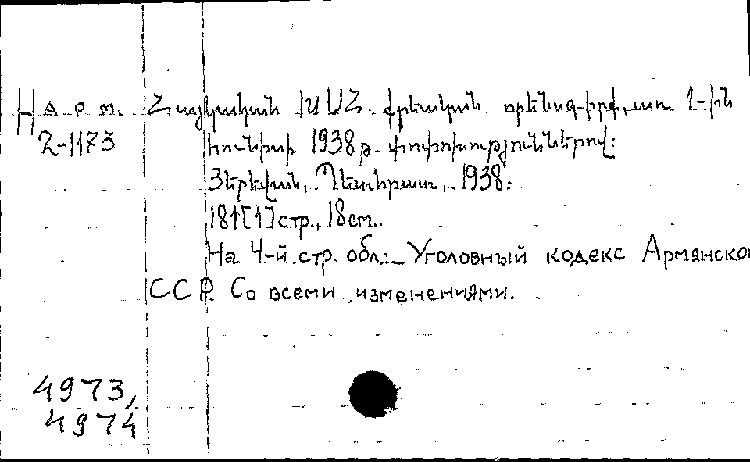 Н а р т. Հայկական ԽՍՀ. քրեական օրենսգիրք, առ 1-ին
2-1173 հունիսի 1938 թ. փոփոխություններով:
Յերեվան, Պետհրատ, 1938.
181[1] стр., 18 см..
На 4-й стр. обл.: Уголовный кодекс Армянско
ССР. Со всеми изменениями.
4973,
4974